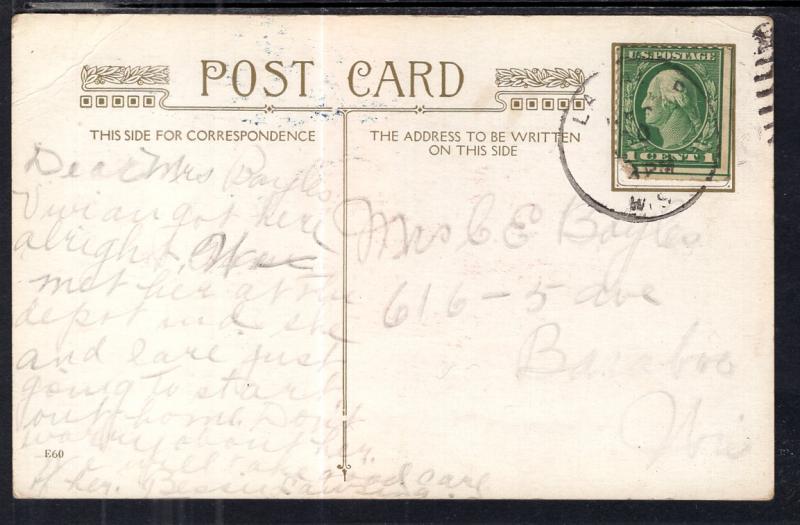 POST CARD
THIS SIDE FOR CORRESPONDENCE
THE ADDRESS TO BE WRITTEN
ON THIS SIDE
U.S. POSTAGE
1 CENT 1
LA
WIS
Dear Mrs Bayles
Vivian got here
alright.
met her at the
depot and she
and are just
going to start
out home. Don't
worry about her.
will take good care
of her. Bessie
Mrs C E Bayles
616 - 5 ave
Baraboo
Wis
E60